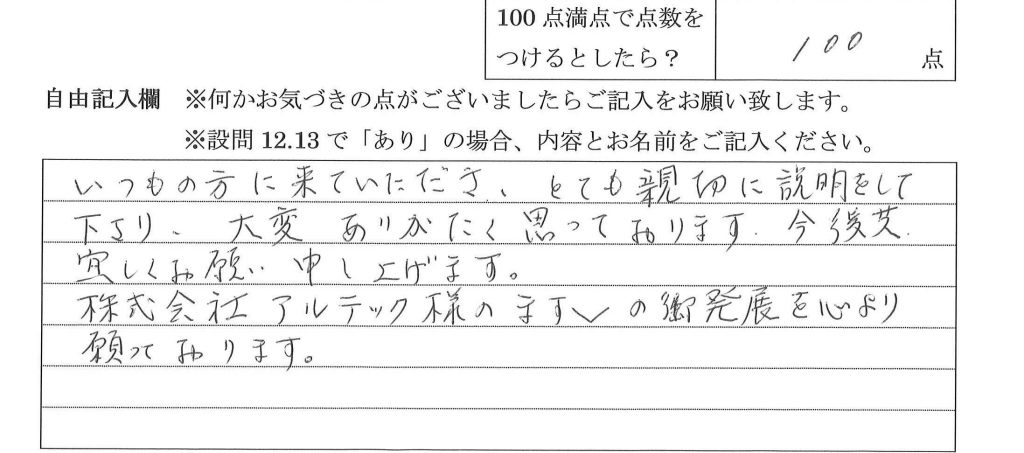 100点満点で点数を
つけるとしたら？
100 点
自由記入欄 ※何かお気づきの点がございましたらご記入をお願い致します。
※設問12.13で「あり」の場合、内容とお名前をご記入ください。
いつもの方に来ていただき、とても親切に説明をして
下さり、大変ありがたく思っております。今後共
宜しくお願い申し上げます。
株式会社アルテック様のます〱の御発展を心より
願っております。